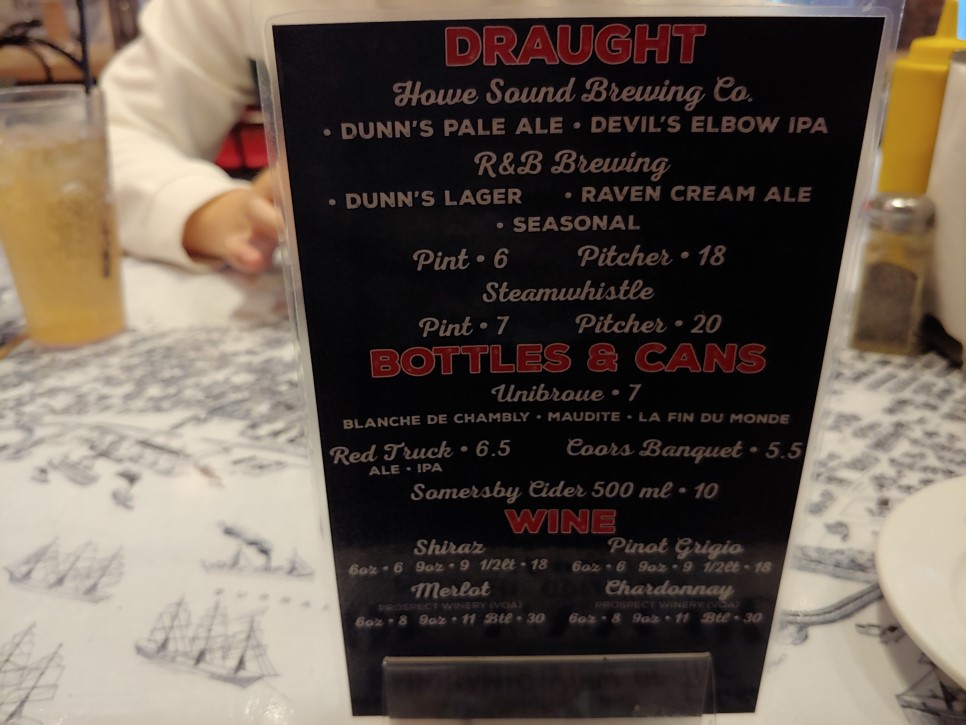 DRAUGHT
Howe Sound Brewing Co.
• DUNN'S PALE ALE • DEVIL'S ELBOW IPA
R&B Brewing
• DUNN'S LAGER • RAVEN CREAM ALE
• SEASONAL
Pint • 6 Pitcher • 18
Steamwhistle
Pint • 7 Pitcher • 20
BOTTLES & CANS
Unibroue • 7
BLANCHE DE CHAMBLY • MAUDITE • LA FIN DU MONDE
Red Truck • 6.5 Coors Banquet • 5.5
ALE • IPA
Somersby Cider 500 ml • 10
WINE
Shiraz Pinot Grigio
6oz • 6 9oz • 9 1/2lt • 18 6oz • 6 9oz • 9 1/2lt • 18
Merlot Chardonnay
PROSPECT WINERY (VQA) PROSPECT WINERY (VQA)
6oz • 8 9oz • 11 Btl • 30 6oz • 8 9oz • 11 Btl • 30